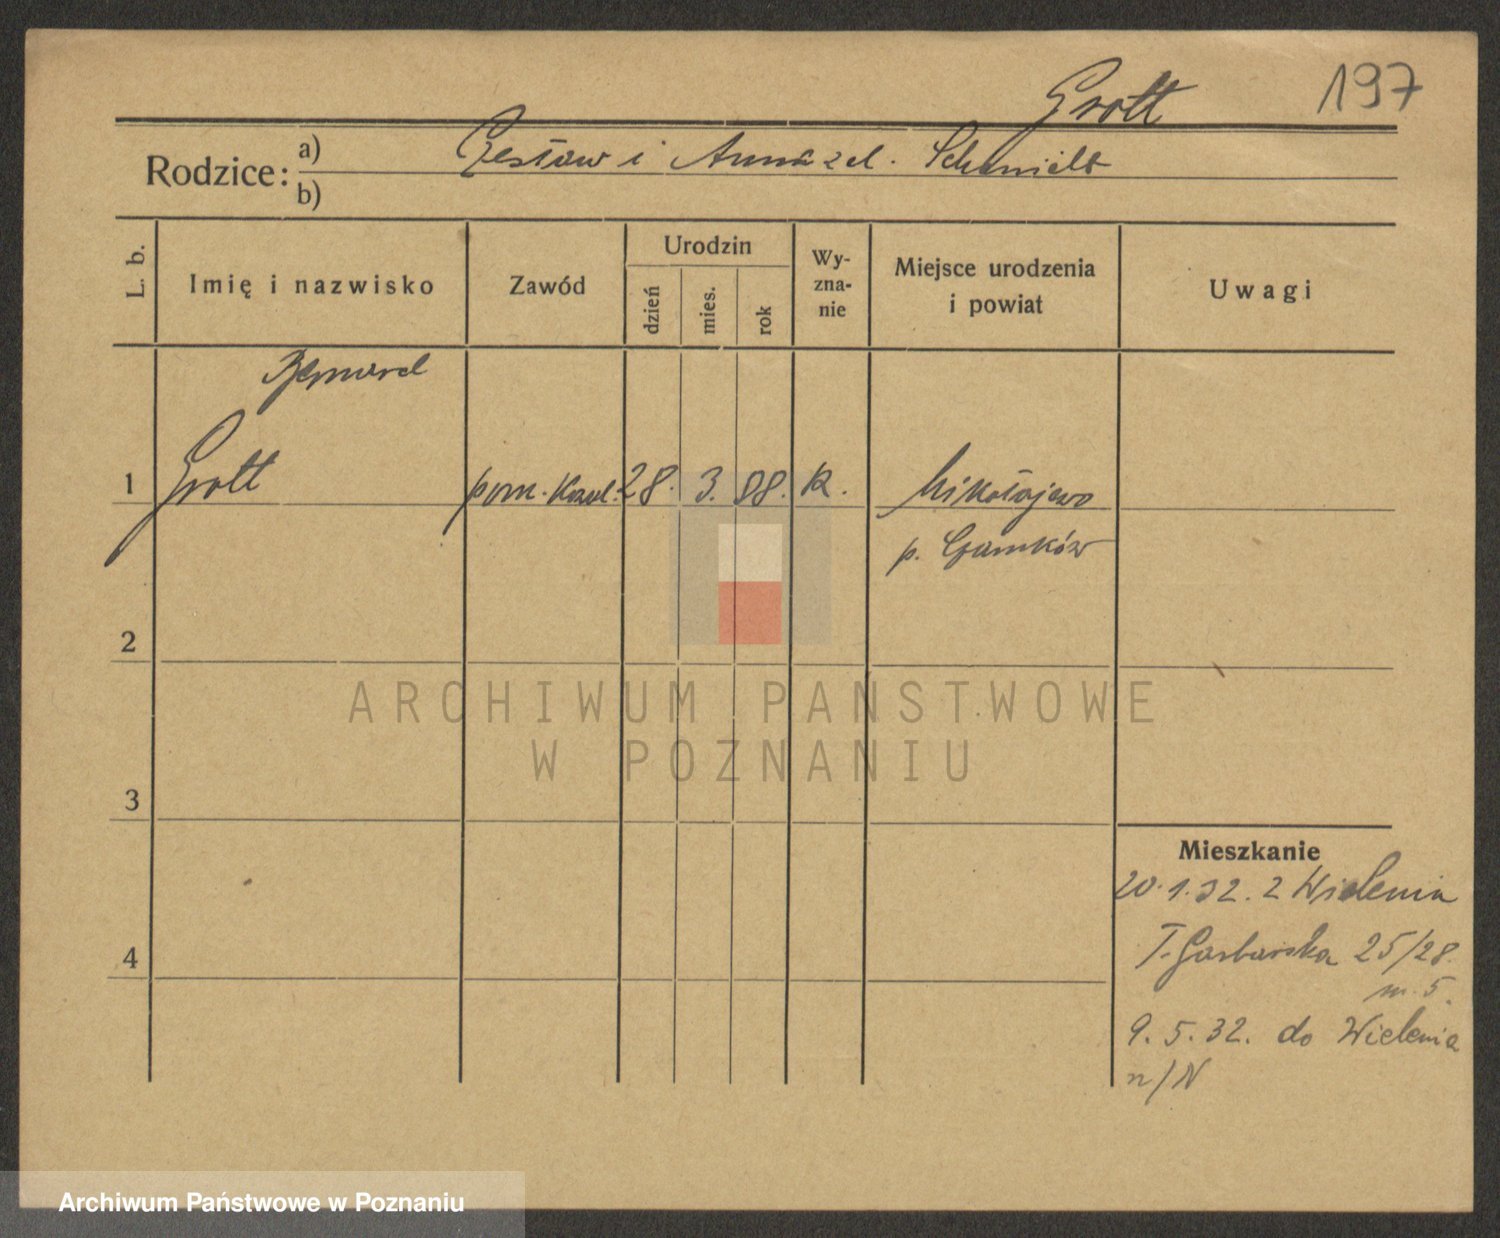 Grott 197
Rodzice: a) Czesław i Anna z d. Schmidt
b)
L. b. Imię i nazwisko Zawód Urodzin dzień mies. rok Wy-zna-nie Miejsce urodzenia i powiat Uwagi
Bernard
1 Grott pom. 28. 3. 88. R. Mikołajewo
p. Czarnków
2
ARCHIWUM PAŃSTWOWE
W POZNANIU
3
Mieszkanie
20.1.32. z Wielenia
4 Garbarska 25/28.
m. 5.
9. 5. 32. do Wielenia
n/N
Archiwum Państwowe w Poznaniu